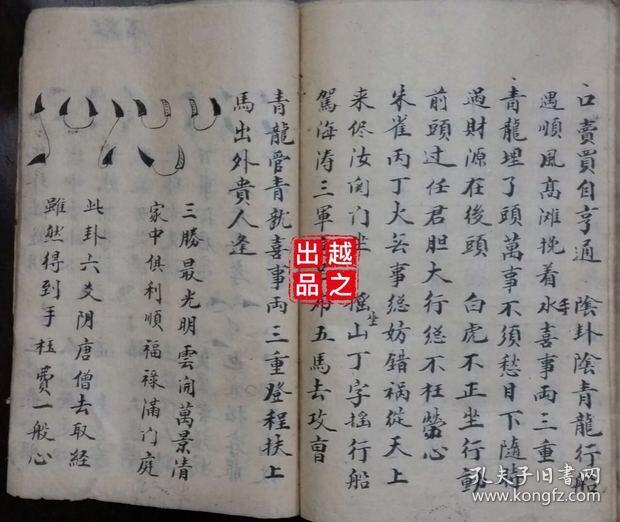 口賣買自亨通 陰卦陰青龍行船
遇順風高滩挽着水手喜事両三重
青龍埋了頭萬事不須愁目下隨時
過財源在後頭 白虎不正坐行動
前頭过任君胆大行終不枉勞心
朱雀丙丁火每事総妨錯禍從天上
来侭汝関门坐 坐摇山丁字摇行船
駕海涛三軍 五馬去攻曺
青龍管青就喜事両三重登程扶上
馬出外貴人逢
三勝最光明雲開萬景清
家中俱利順福祿滿门庭
此卦六爻阴唐僧去取经
雖然得到手枉費一般心
越之
出品
孔夫子旧书网
www.kongfz.com